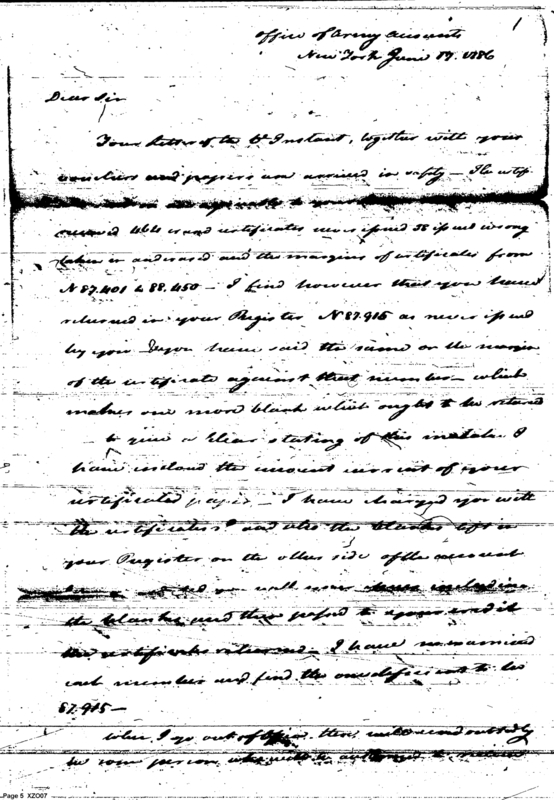 1
Office of Army Accounts
New York June 19. 1786
Dear Sir
Your Letter of the 6th Instant, together with your
vouchers and papers are arrived in safety — The
agreeable to your
received blank certificates never issued 38 issued wrong
taken in and erased and the margins of certificates from
N 87.401 to 88.450 — I find however that you have
returned in your Register N 87.915 as never issued
by you — & you have said the same on the margin
of the certificate against that number — which
makes one more blank which ought to be returned
— to give a clear stating of this mistake I
have inclosed the account current of your
certificates paper — I have charged you with
the certificates & and also the blanks left in
your Register on the other side of the account
you will have including
the blanks and then passed to your credit
the certificates returned — I have examined
each number and find the one deficient to be
87.915 —
When I go out of office there will undoubtedly
be some person who will be authorised to
Page 5 XZO07